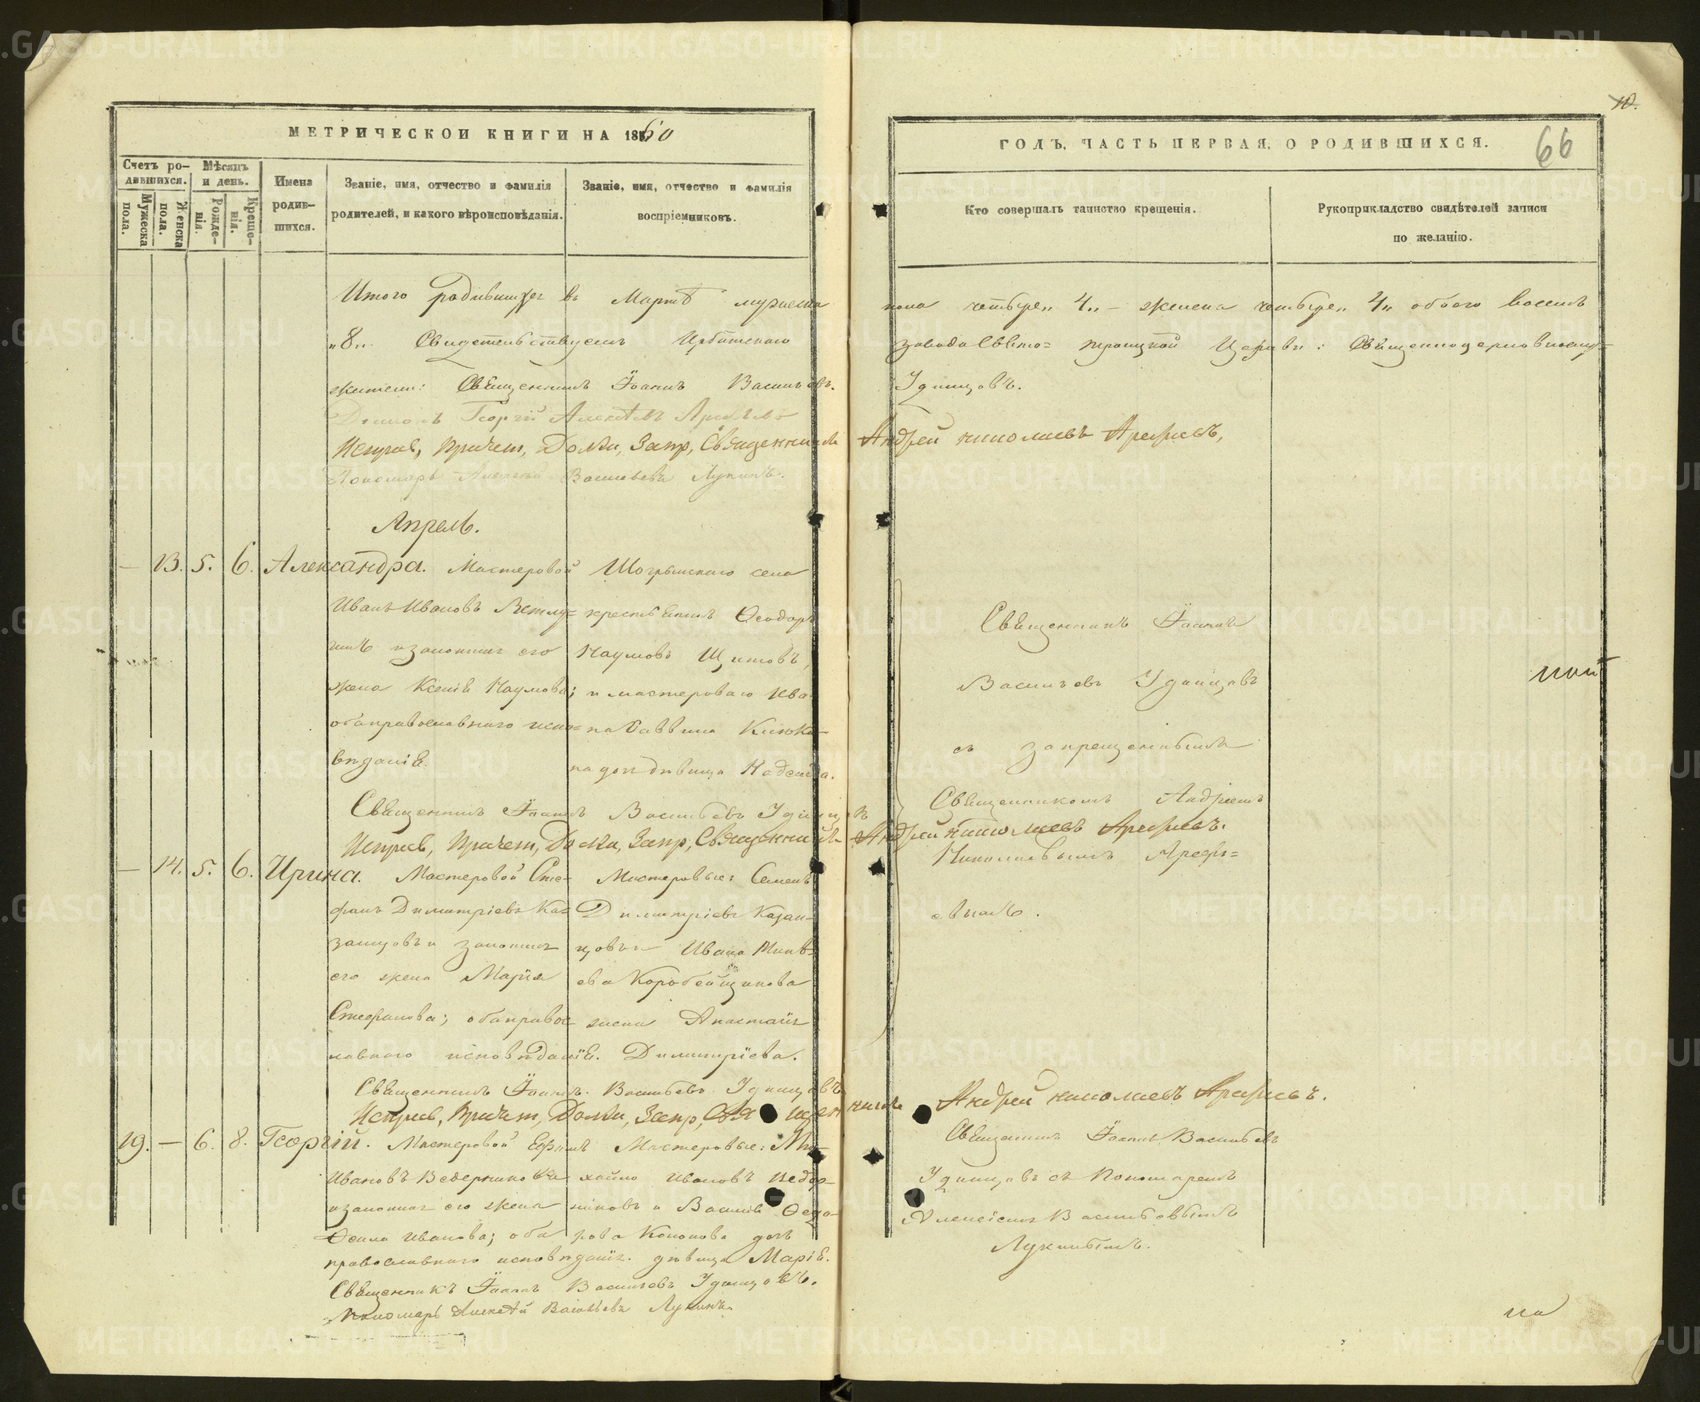 МЕТРИЧЕСКОЙ КНИГИ НА 1860
ГОДЪ, ЧАСТЬ ПЕРВАЯ, О РОДИВШИХСЯ.
66
Счетъ ро-
дившихся.
Мужеска пола.
Женска пола.
Мѣсяцъ
и день.
Рожде-
нія.
Креще-
нія.
Имена
родив-
шихся.
Званіе, имя, отчество и фамилія
родителей, и какого вѣроисповѣданія.
Званіе, имя, отчество и фамилія
воспріемниковъ.
Кто совершалъ таинство крещенія.
Рукоприкладство свидѣтелей записи
по желанію.
Итого родившихся въ Мартѣ мужеска пола четыре „4„ – женска четыре „4„ обоего восемь
„8„. Свидетельствуемъ Ирбитскаго завода Свято= Троицкой Церкви: Священноцерковнослу=
жители: Священникъ Іоаннъ Васильевъ Удинцовъ.
Діаконъ Георгій Алексѣевъ
Исправ, Причет, Долж, Запр, Священникъ Андрей николаевъ Арефьевъ,
Пономарь Алексѣй Васильевъ Лукинъ.
Апрель.
— 13. 5. 6. Александра. Мастеровой
Иванъ Ивановъ
и законная его
жена Ксенія Наумова;
оба православнаго испо=
вѣданія.
Шогрышскаго села
крестьянинъ Ѳеодоръ
Наумовъ Щитовъ,
и мастероваго Ива=
на Саввина
на дочь дѣвица Надежда.
Священникъ Іоаннъ Васильевъ Удинцовъ
Исправ, Причет, Долж, Запр, Священникъ Андрей николаевъ Арефьевъ.
— 14. 5. 6. Ирина. Мастеровой Сте=
фанъ Димитріевъ Ка=
занцовъ и законная
его жена Марія
Стефанова; оба правос=
лавнаго исповѣданія.
Мастеровые: Семенъ
Димитріевъ Казан=
цовъ и Ивана
ева Коробейщикова
жена Анастасія
Димитріева.
Священникъ Іоаннъ Васильевъ Удинцовъ
Исправ, Причет, Долж, Запр, Священникъ Андрей николаевъ Арефьевъ.
Священникъ Іоаннъ
Васильевъ Удинцовъ
съ запрещеннымъ
Священникомъ Андреемъ
Николаевымъ Арефь=
евымъ.
19. — 6. 8. Георгій. Мастеровой Ефимъ
Ивановъ Ведерниковъ
и законная его жена
Иванова; оба
православнаго исповѣданія.
Мастеровые: Ми=
хайло Ивановъ Ведер=
никовъ и Василія Ѳедо=
рова Кононова дочь
дѣвица Марія.
Священникъ Іоаннъ Васильевъ Удинцовъ.
Пономарь Алексѣй Васильевъ Лукинъ.
Священникъ Іоаннъ Васильевъ
Удинцовъ съ Пономаремъ
Алексіемъ Васильевымъ
Лукинымъ.
METRIKI.GASO-URAL.RU